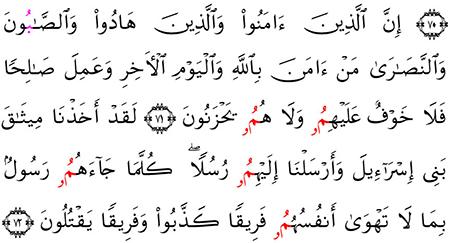 ﴿٧٠﴾ إِنَّ الَّذِينَ ءَامَنُواْ وَالَّذِينَ هَادُواْ وَالصَّٰبُونَ
وَالنَّصَٰرَىٰ مَنْ ءَامَنَ بِاللَّهِ وَالْيَوْمِ الْأَخِرِ وَعَمِلَ صَٰلِحًا
فَلَا خَوْفٌ عَلَيْهِمُۥ وَلَا هُمُۥ يَحْزَنُونَ ﴿٧١﴾ لَقَدْ أَخَذْنَا مِيثَٰقَ
بَنِى إِسْرَٰٓءِيلَ وَأَرْسَلْنَا إِلَيْهِمُۥ رُسُلًاۖ كُلَّمَا جَآءَهُمُۥ رَسُولُۢ
بِمَا لَا تَهْوَىٰ أَنفُسُهُمُۥ فَرِيقًا كَذَّبُواْ وَفَرِيقًا يَقْتُلُونَ ﴿٧٢﴾